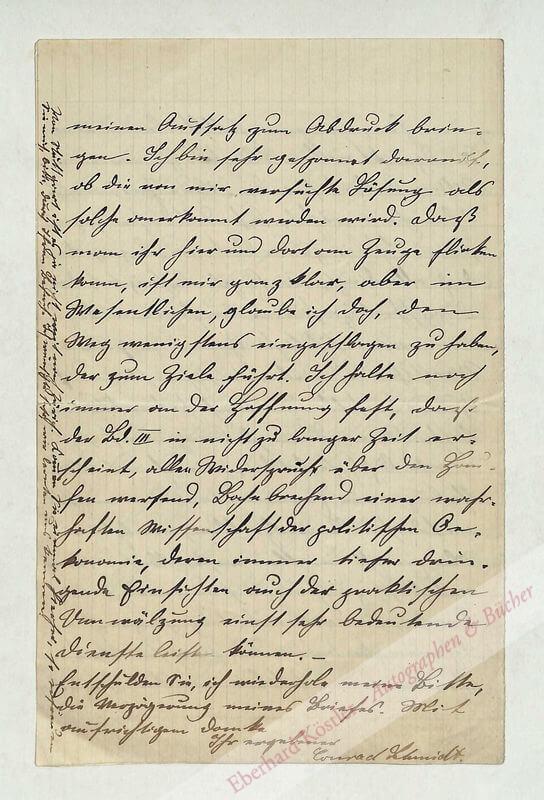 meinen Aufsatz zum Abdruck brin-
gen. Ich bin sehr gespannt darauf,
ob die von mir versuchte Lösung als
solche anerkannt werden wird. Daß
man ihr hier und dort am Zeuge flicken
kann, ist mir ganz klar, aber im
Wesentlichen, glaube ich doch, den
Weg wenigstens eingeschlagen zu haben,
der zum Ziele führt. Ich halte noch
immer an der Hoffnung fest, daß
der Bd. III in nicht zu langer Zeit er-
scheint, allen Widerspruch über den Hau-
fen werfend, Bahn brechend einer wahr-
haften Wissenschaft der politischen Oe-
konomie, deren immer tiefer drin-
gende Einsichten auch der praktischen
Umwälzung einst sehr bedeutende
Dienste leisten können. –
Entschulden Sie, ich wiederhole meine Bitte,
die Verzögerung meines Briefes. Mit
aufrichtigem Danke
Ihr ergebener
Conrad Schmidt.
Eberhard Köstler Autographen & Bücher